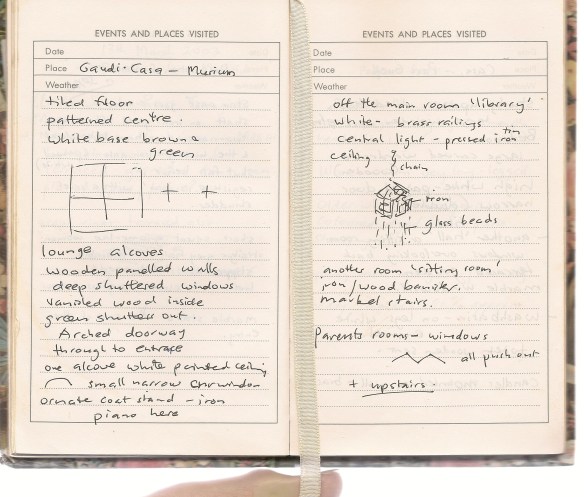 EVENTS AND PLACES VISITED
Date
Place Gaudi · Casa – Murium
Weather
tiled floor
patterned centre.
white base brown &
green
lounge alcoves
wooden panelled walls
deep shuttered windows
vanished wood inside
green shutters out.
Arched doorway
through to entrace
one alcove white painted ceiling
small narrow
ornate coat stand – iron
piano here
EVENTS AND PLACES VISITED
Date
Place
Weather
off the main room 'library'
white - brass railings
central light - pressed iron tin
ceiling
chain
iron
glass beads
another room 'sitting room'
iron / wood banister.
marbel stairs.
Parents rooms – windows
all push out
+ upstairs.